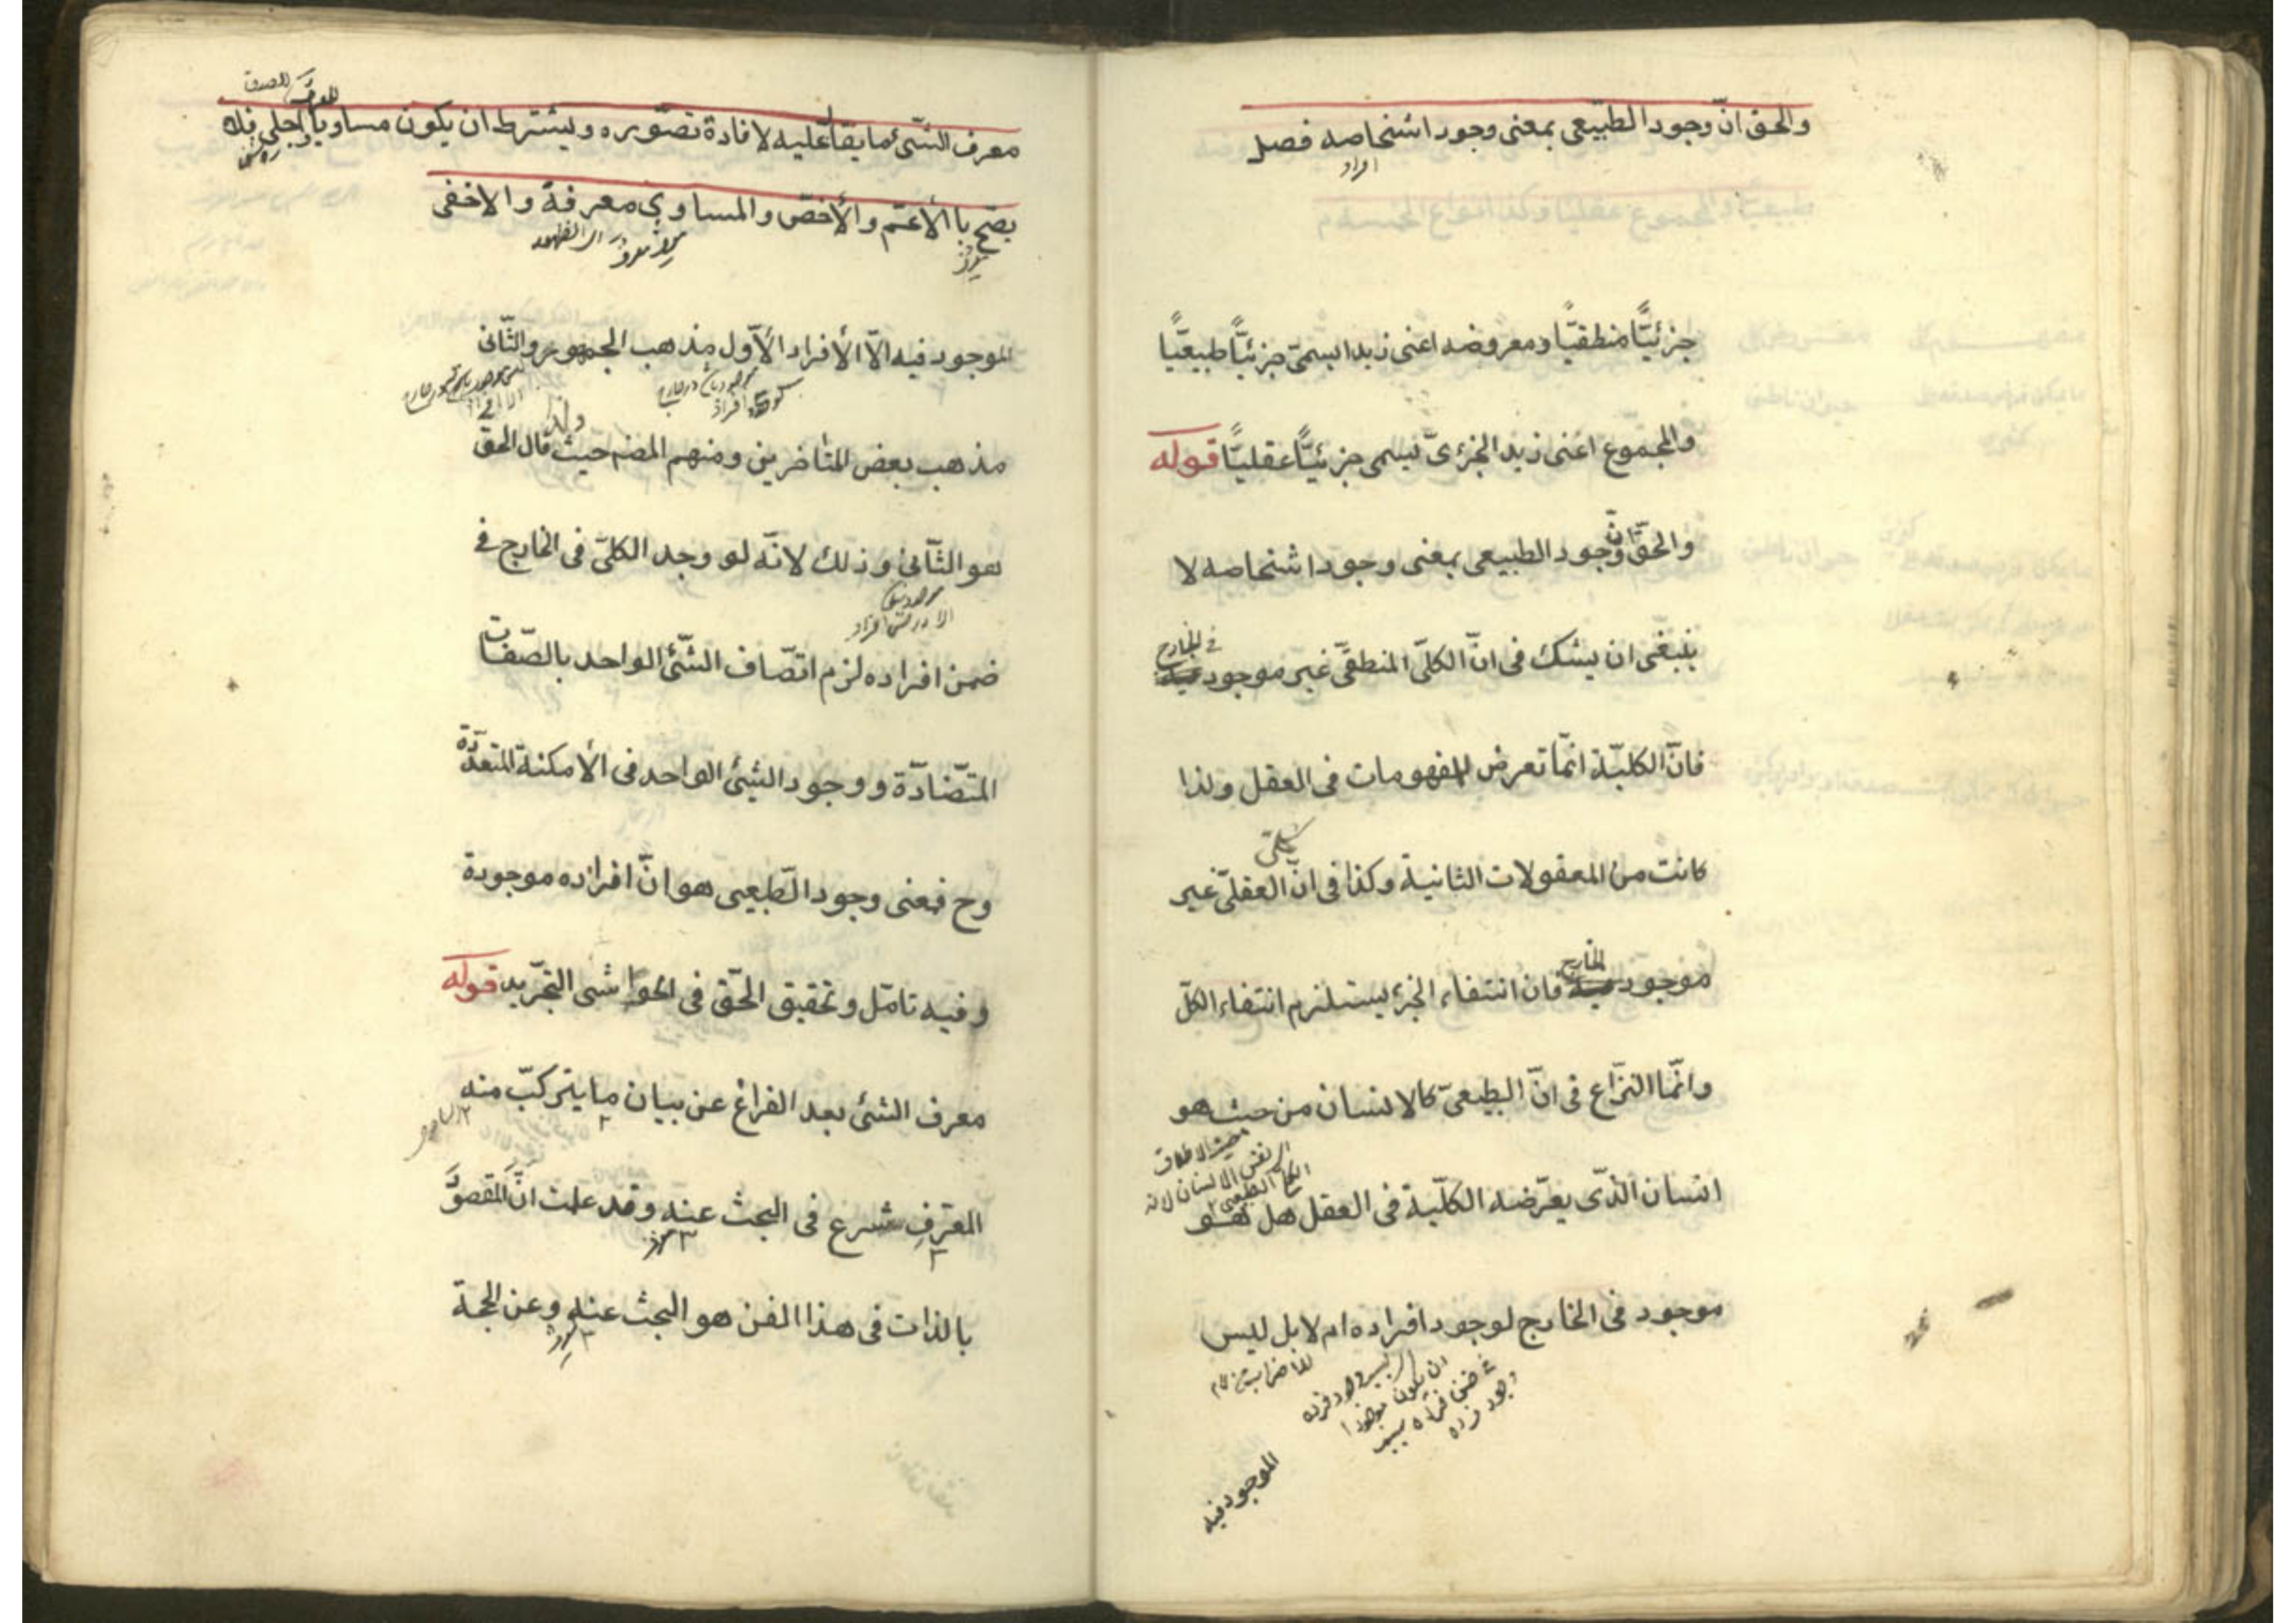 والحق انّ وجود الطبيعى بمعنى وجود اشخاصه فصل
افراد
جزئيًّا منطقيًّا ومعروضه اعنى زيدا يسمىّ جزئيًّا طبيعيًّا
والمجموع اعنى زيد الجزئىّ يسمى جزئيًّا عقليًّا قوله
والحقّ انّ وجود الطبيعى بمعنى وجود اشخاصه لا
ينبغى ان يشك فى انّ الكلىّ المنطقىّ غير موجود فى الخارج
فانّ الكليّة انمّا تعرض للمفهومات فى العقل ولذا
كانت من المعقولات الثانية وكذا فى انّ العقلىّ غير
موجود الخارج فان انتفاء الجزء يستلزم انتفاء الكلّ
وانمّا النزّاع فى انّ الطبيعىّ كالانسان من حيث هو
انسان الذّى يعرّضه الكليّة فى العقل هل هو
الكلى الطبيعى
موجود فى الخارج لوجود افراده ام لا بل ليس
ان يكون موجودا
فى ضمن فراده بسبب
وجود فرده
الموجود فيه
معرف الشّئ ما يقال عليه لافادة تصّوره ويشترط ان يكون مساويا او اجلى فلا
يصّح با الأعمّ والأخصّ والمساوى معرفة والاخفى
الموجود فيه الاّ الأفراد الأوّل مذهب الجمهور والثّانى
مذهب بعض المتاخرين ومنهم المضه حيث قال الحق
ولذا
هو الثّانى وذلك لانّه لو وجد الكلىّ فى الخارج فى
ضمن افراده لزم اتصّاف الشّئ الواحد بالصّفات
المتضّادّة ووجود الشئ الواحد فى الأمكنة المتعدّدة
وح فمعنى وجود الطّبيعى هو انّ افراده موجودة
وفيه تامّل وتحقيق الحقّ فى الحواشى التجرّيد قوله
معرف الشئ بعد الفراغ عن بيان ما يتركبّ منه
المعرّف شرع فى البحث عنه وقد علمت انّ المقصود
بالذات فى هذا الفن هو البحث عنه وعن الحجة